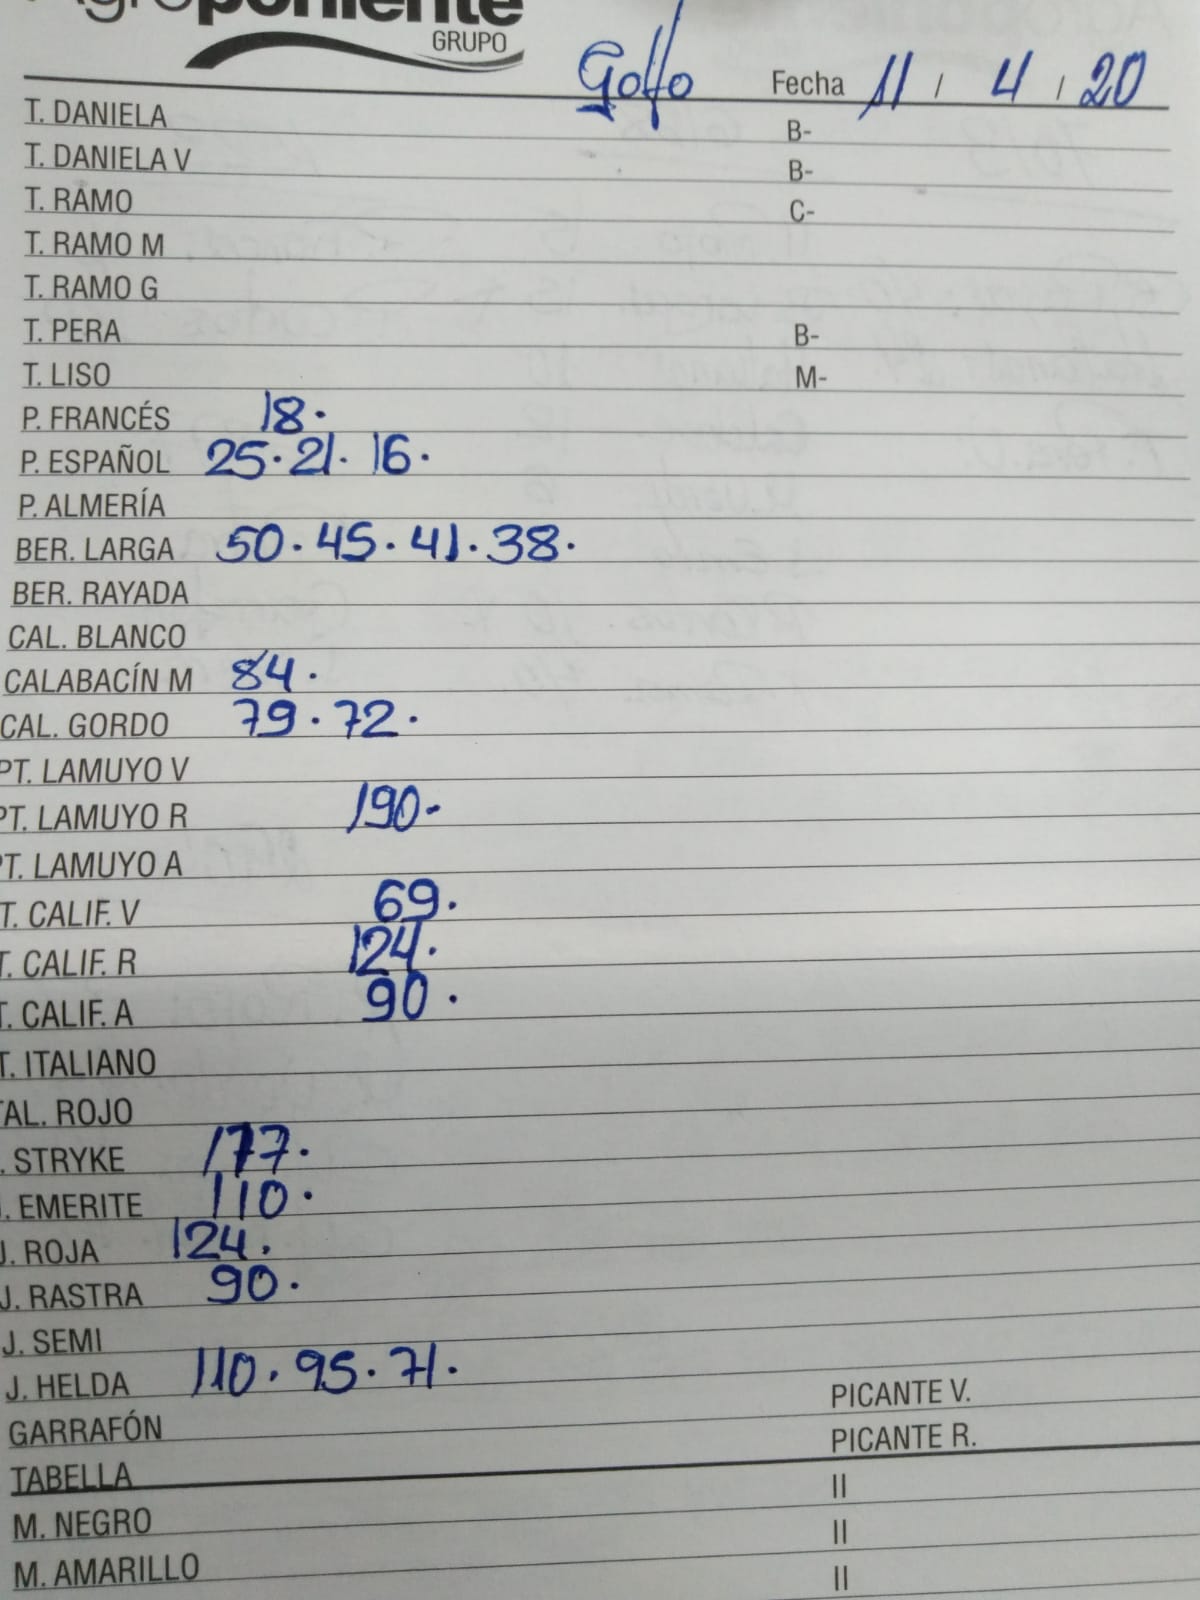 Agroponiente
GRUPO
Golfo Fecha 11 / 4 / 20
T. DANIELA B-
T. DANIELA V B-
T. RAMO C-
T. RAMO M
T. RAMO G
T. PERA B-
T. LISO M-
P. FRANCÉS 18.
P. ESPAÑOL 25. 21. 16.
P. ALMERÍA
BER. LARGA 50. 45. 41. 38.
BER. RAYADA
CAL. BLANCO
CALABACÍN M 84.
CAL. GORDO 79. 72.
PT. LAMUYO V
PT. LAMUYO R 190-
PT. LAMUYO A
T. CALIF. V 69.
T. CALIF. R 124.
T. CALIF. A 90.
T. ITALIANO
TAL. ROJO
. STRYKE 177.
J. EMERITE 110.
J. ROJA 124.
J. RASTRA 90.
J. SEMI
J. HELDA 110. 95. 71.
GARRAFÓN PICANTE V.
TABELLA PICANTE R.
M. NEGRO II
M. AMARILLO II
II